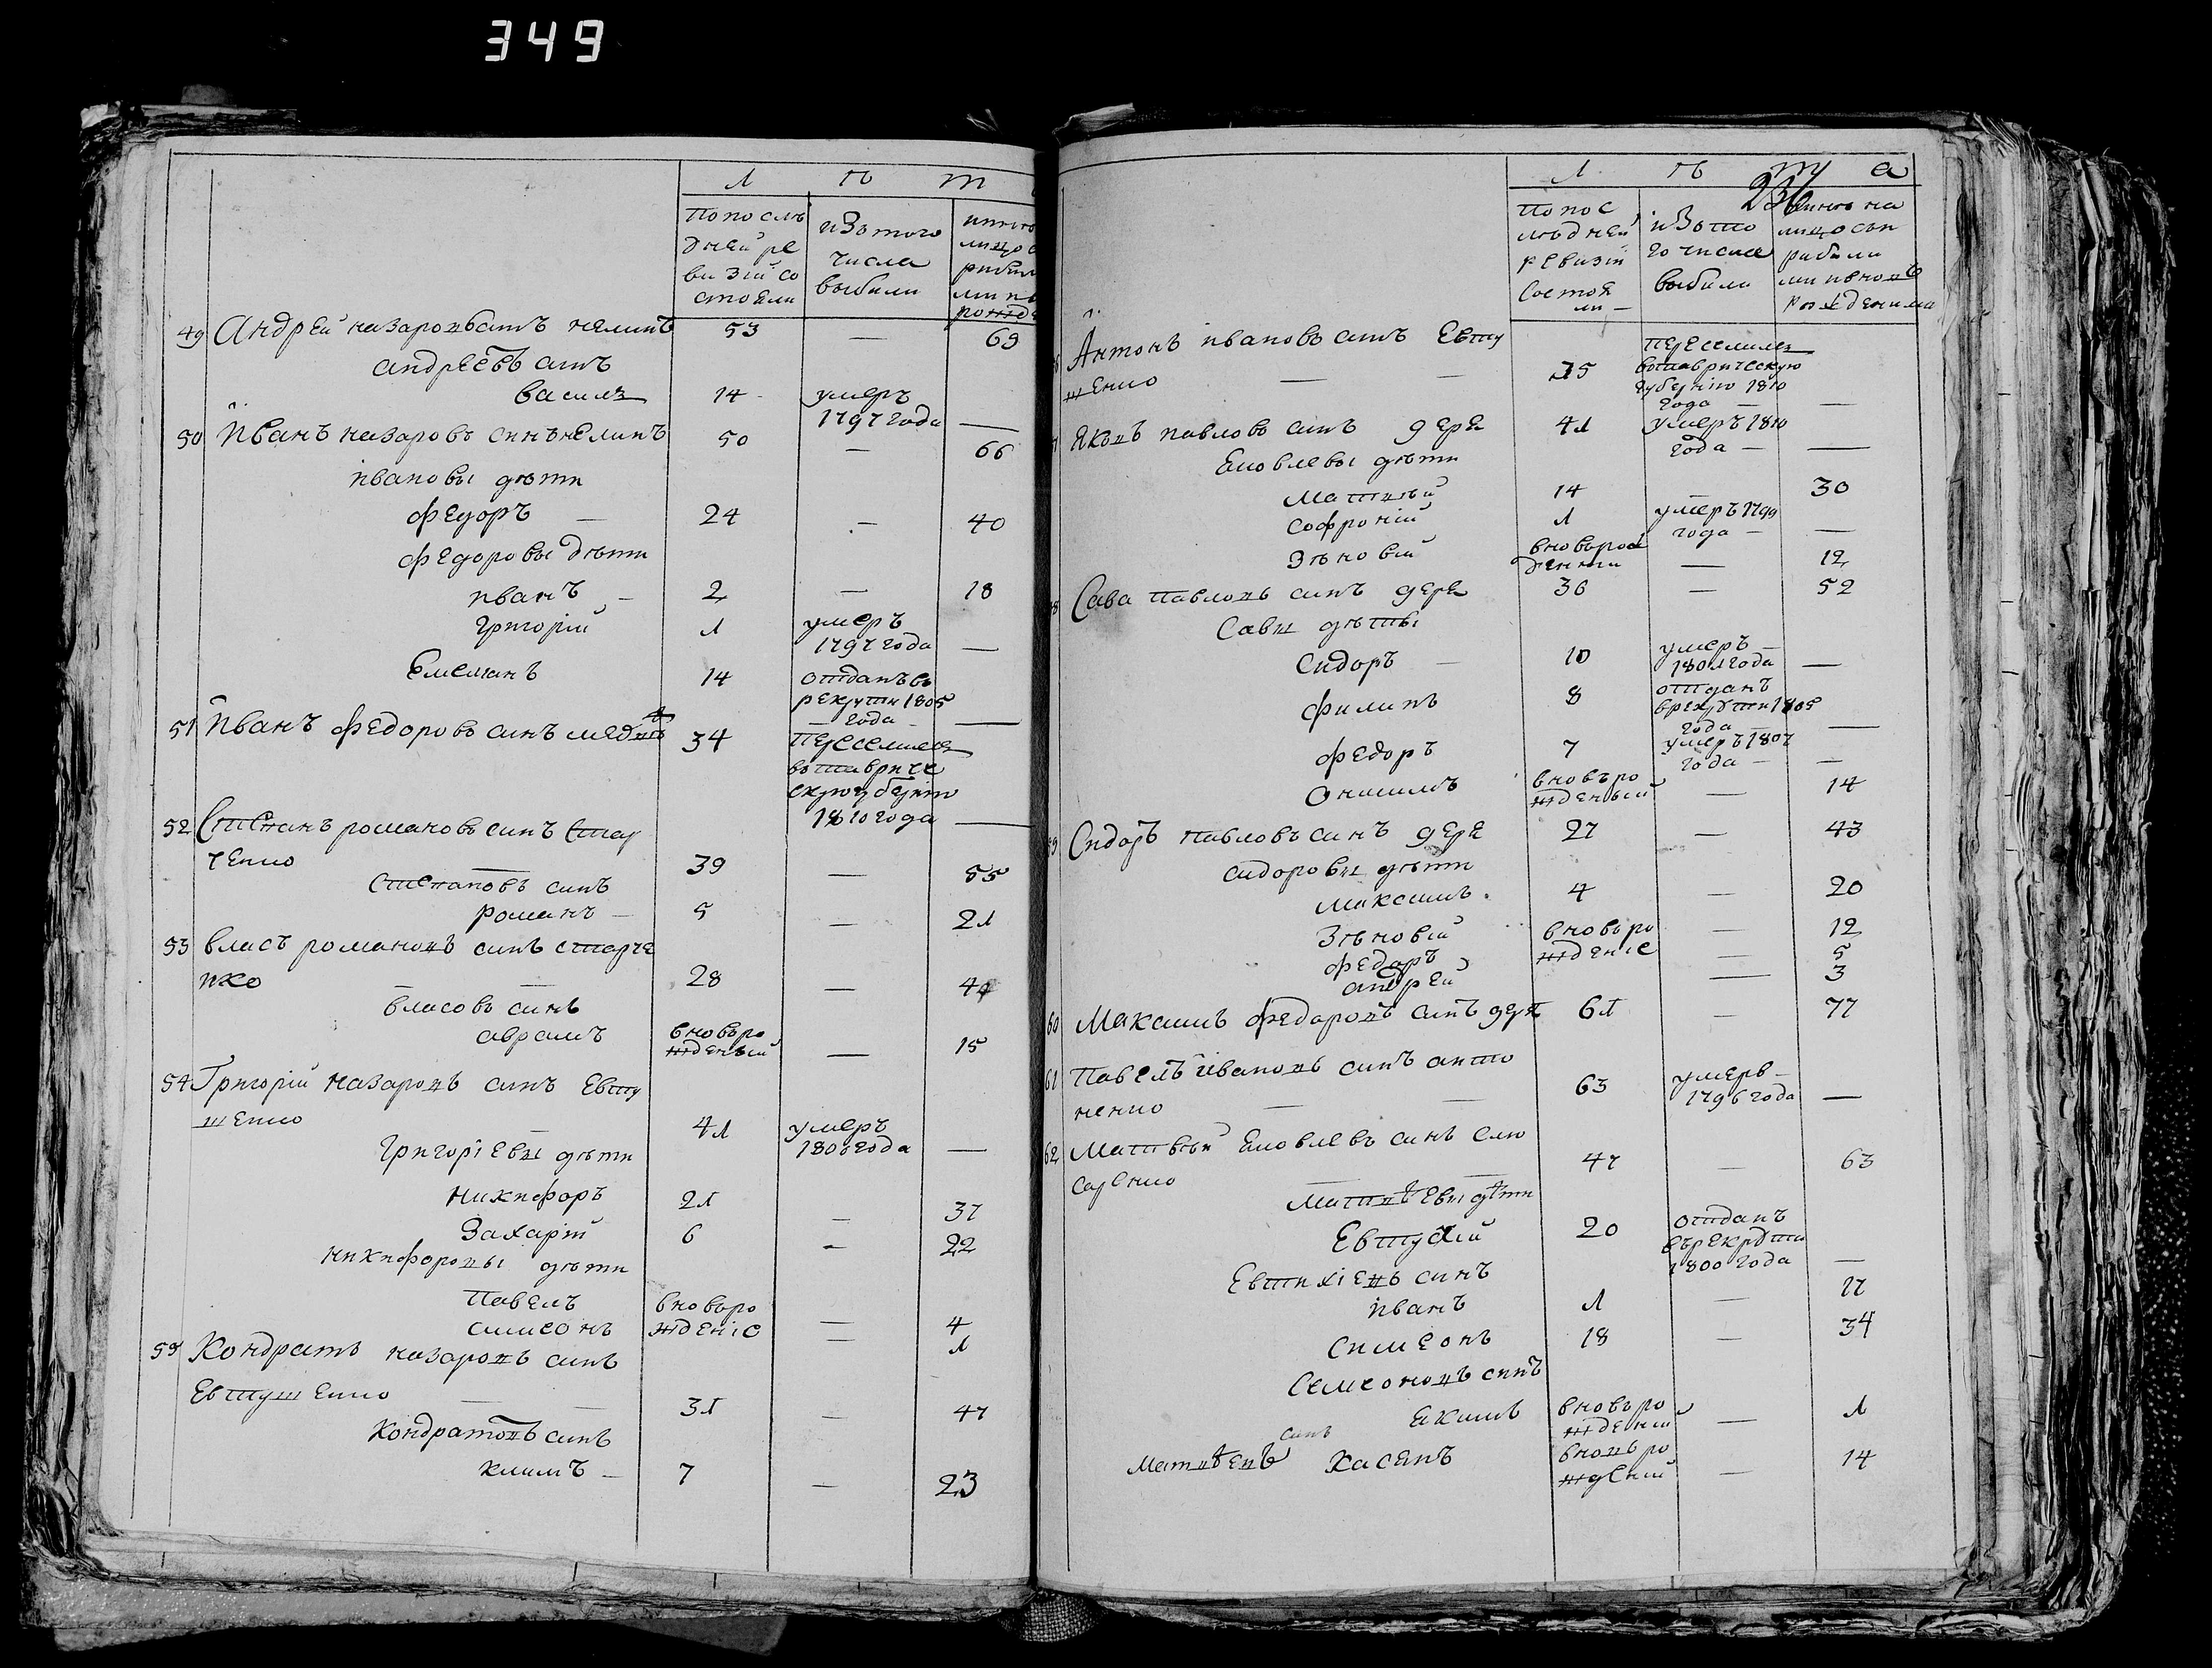 349
Л ѣ т
По послѣ
дней ре
визій со
стояли
изътого
числа
выбыли
69
49 Андрей назаровъ синъ нелипъ 53 —
андреевъ синъ
василь 14 умеръ
1797 года —
50 Иванъ назаровъ синъ нелипъ 50 — 66
ивановы дѣти
Федоръ — 24 — 40
Федоровы дѣти
иванъ — 2 — 18
григорій 1 умеръ
1797 года —
Емелианъ 14 отданъ въ
рекрути 1805
— года — —
51 Иванъ Федоровъ синъ 34 переселился
въ тавриче
скую губернію
1810 года —
52 Степанъ романовъ синъ Стар
ченко — 39 — 55
степановъ синъ
романъ — 5 — 21
53 власъ романовъ синъ старче
нко — — 28 — 44
власовъ синъ
аврамъ вновъро
жденый — 15
54 Григорій назаровъ синъ Евту
шенко — 41 умеръ
180 года —
Григоріевы дѣти
Никифоръ 21 — 37
Захарій 6 — 22
никифоровы дѣти
Павелъ вновъро — 4
симеонъ жденіе — 1
55 Кондратъ назаровъ синъ
Евтушенко — — 31 — 47
Кондратовъ синъ
климъ — 7 — 23
Л ѣ т а
По пос
лѣдней
ревизіи
состоя
ли —
изъто
го числа
выбыли
нынѣ на
лицо съп
рибыли
ми ивновъ
рожденими
Антонъ ивановъ синъ Евту
шенко — — 35 переселился
въ таврическую
губернію 1810
года — —
Якъвъ павловъ синъ дере 41 умеръ 1810
года — —
Яковлевы дѣти
Матвѣй 14 — 30
софроній 1 умеръ 1799
года — —
Зѣновій вновърож
денни — 12
Сава павловъ синъ дере 36 — 52
Савы дѣты
Сидоръ — 10 умеръ —
1801 года —
филипъ 8 отданъ
врекрути 1805
года — —
федоръ 7 умеръ 1807
года — —
Онисимъ вновъро
жденый — 14
Сидоръ павловъ синъ дере 27 — 43
сидоровы дѣти
максимъ 4 — 20
Зѣновій вновъро — 12
федоръ жденіе — 5
андрей — 3
60 Максимъ федоровъ синъ дере 61 — 77
61 Павелъ івановъ синъ анто
ненко — — 63 умерв —
1796 года —
62 Матвѣй Яковлевъ синъ слю
саренко — — 47 — 63
Матвѣевы дѣти
Евтухій 20 отданъ
върекрути
1800 года —
Евтихіевъ синъ
иванъ 1 — 17
симеонъ 18 — 34
Семеоновъ синъ
якимъ вновъро
жденій — 1
синъ
Матвѣевъ касянъ вновъро
жденій — 14